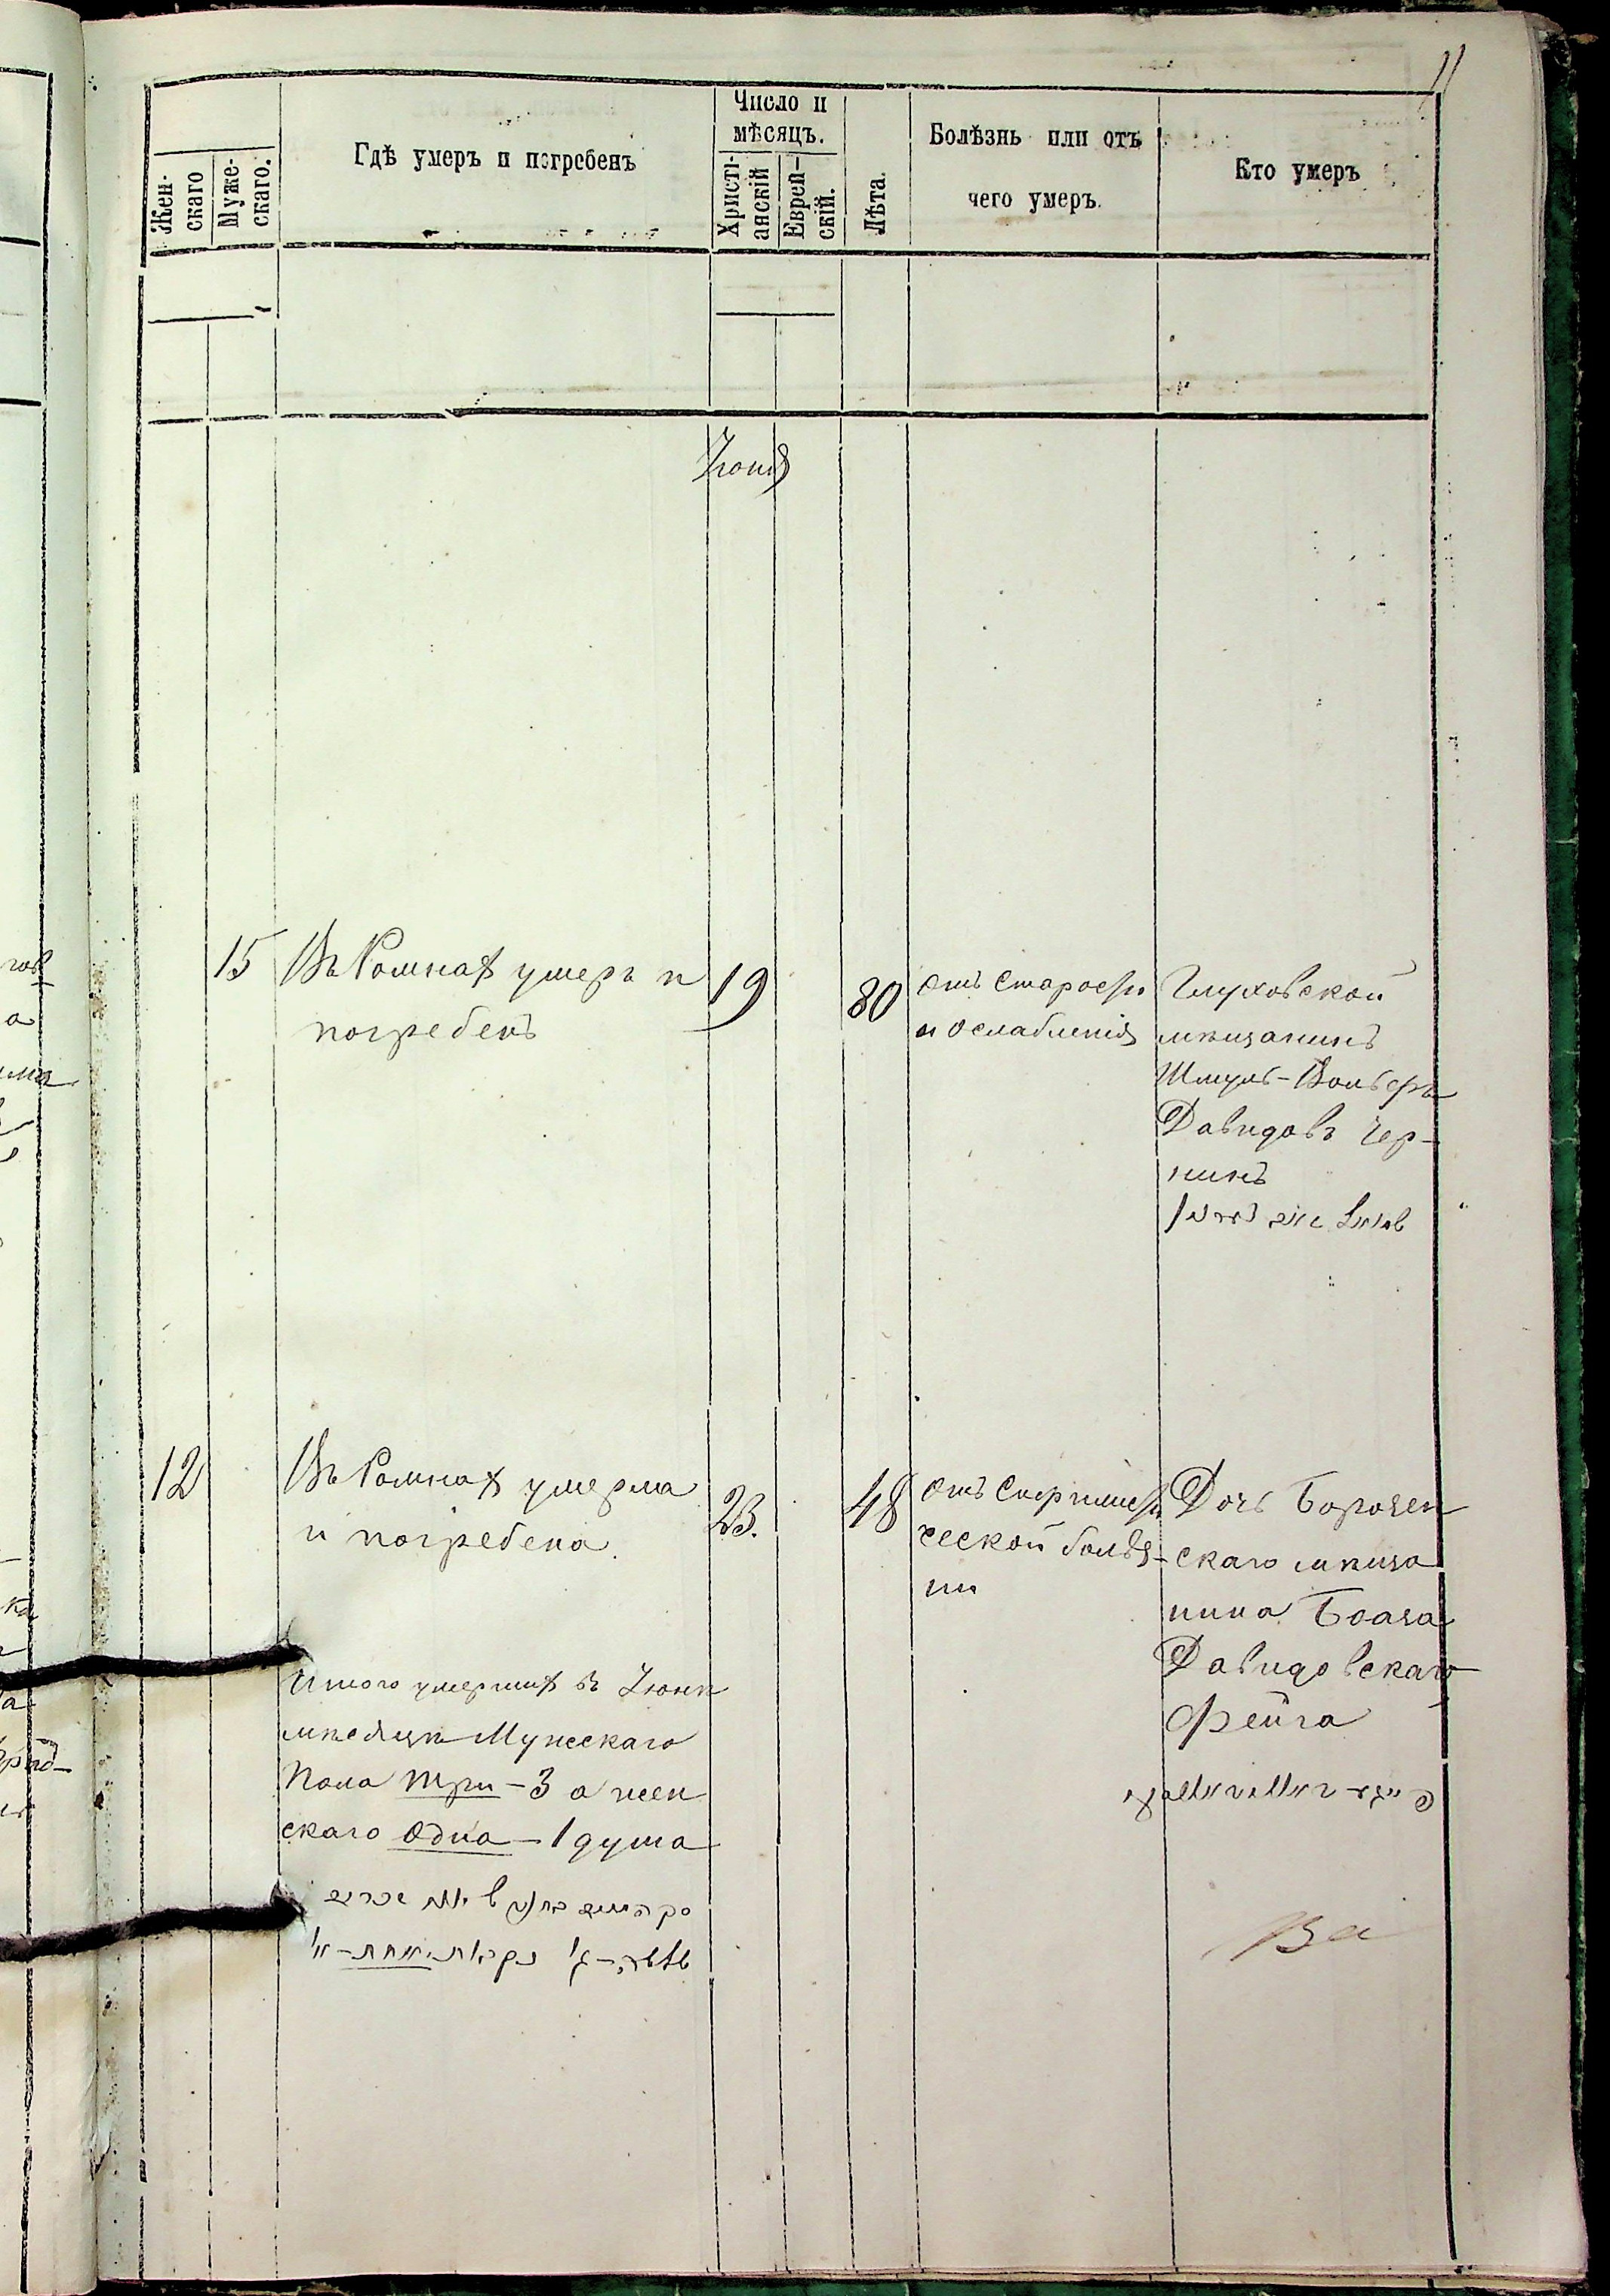 11
Жен-
скаго
Муже-
скаго.
Гдѣ умеръ и погребенъ
Число и
мѣсяцъ.
Христі-
анскій
Еврей-
скій.
Лѣта.
Болѣзнь или отъ
чего умеръ.
Кто умеръ
Іюня
15
Въ Ромнах умеръ и
погребенъ
19
80
отъ старости
и ослабленія
Глуховской
мѣщанинъ
Шмуль-Вольфъ
Давидовъ Чер-
нинъ
12
Въ Ромнах умерла
и погребена.
23.
48
отъ
ческой болѣз-
ни
Дочь Борозен
скаго мѣща
нина Боаза
Давидовскаго
Фейга
Итого умерших въ Іюнѣ
мѣсяцѣ Мужескаго
Пола три - 3 а жен
скаго одна - 1 душа
За